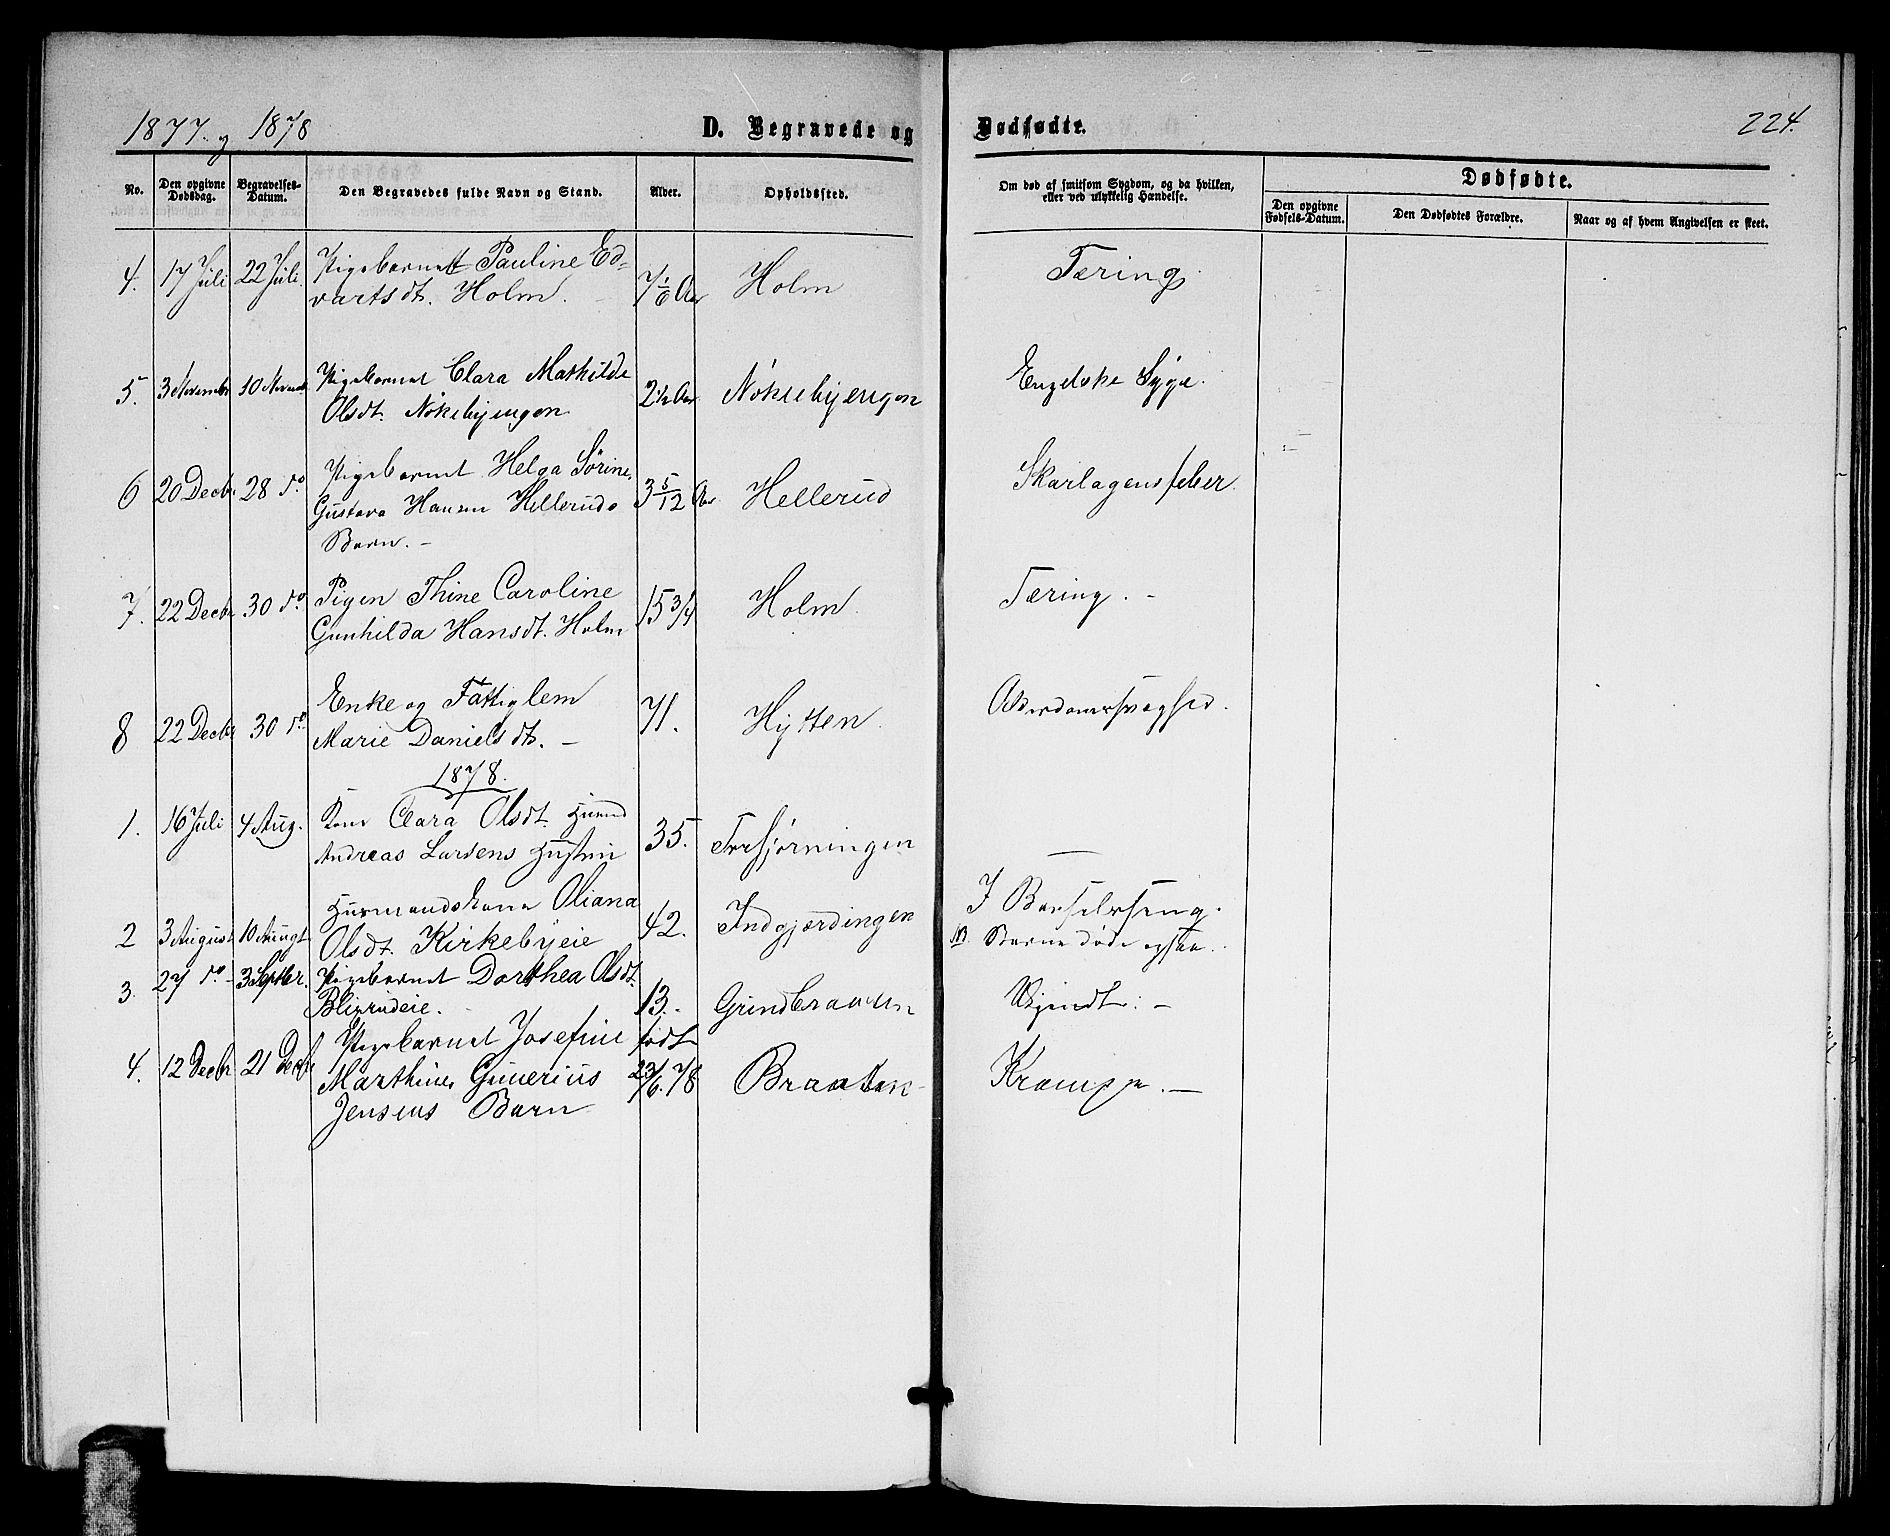 1877. og 1878
D. Begravede og Dødfødte.
224.
No.
Den opgivne Dødsdag.
Begravelses-Datum.
Den Begravedes fulde Navn og Stand.
Alder.
Opholdssted.
Om død af smitsom Sygdom, og da hvilken, eller ved ulykkelig Hændelse.
Dødfødte.
Den opgivne Fødsels-Datum.
Den Dødfødtes Forældre.
Naar og af hvem Angivelsen er skeet.
4. 17 Juli 22 Juli. Pigebarnet Pauline Ed-
vartsdt. Holm. 7 1/6 Aar Holm Tæring.
5. 3 November 10 Novemb Pigebarnet Clara Mathilde
Olsdt. Nökebyengen 2 1/2 Aar Nöklebyengen Engelske Syge.
6 20 Decbr 28 do Pigebarnet Helga Sörine
Gustava Hansen Helleruds 3 5/12 Aar Hellerud Skarlagensfeber.
Barn. -
7. 22 Decbr 30 do Pigen Thine Caroline
Gunhilda Hansdt. Holm 15 3/4 Holm. Tæring. -
8 22 Decbr 30 do Enke og Fattiglem
Marie Danielsdt. - 71. Hytten. Alderdomssvaghed.
1878.
1. 16 Juli 4 Aug. Kone Clara Olsdt. Husmd
Andreas Larsens Hustru 35. Torsjörningen —
2 3 August 10 Augt. Husmandskone Oliana
Olsdt. Kirkebyeie 42. Indgjærdingen I Barselseng.
NB. Barnet døde ogsaa.
3. 27 do - 3 Septbr. Pigebarnet Dorthea Olsdt.
Blixrudeie. 13.- Grindbraaten Ukjendt: -
4. 12 Decbr 21 Decbr Pigebarnet Josefine
Marthine, Gunerius
Jensens Barn födt 23/6. 78 Braaten Krampe. —